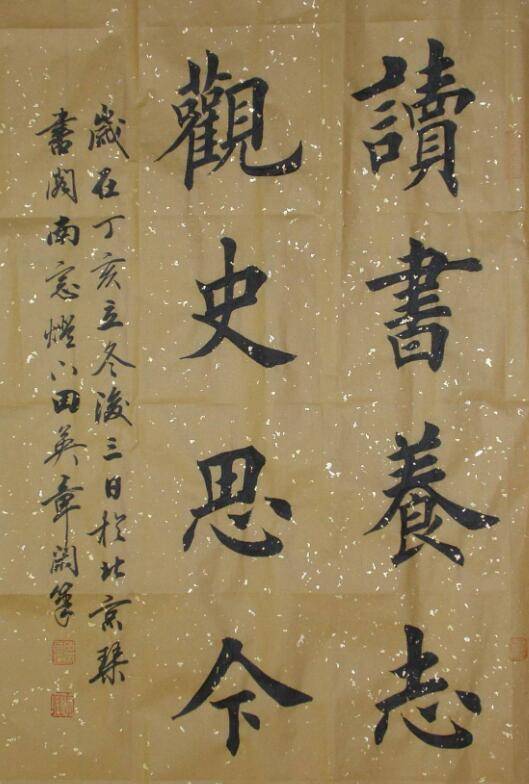 讀書養志
觀史思今
歲在丁亥立冬後三日於北京琴
書閣南窓燈下田英章開筆